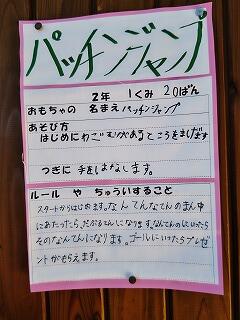 パッチンジャンプ
2年 1くみ 20ばん
おもちゃの 名まえ パッチンジャンプ
あそび方
はじめにわごむがあるところをまげます
つぎに 手をはなします。
ルール や ちゅういすること
スタートからはじめます。なん てんなてんのまん中
にあたったら、だぶるてんになります。なんてんのにいったら
そのなんてんになります。ゴールにいったらプレゼ
ントがもらえます。